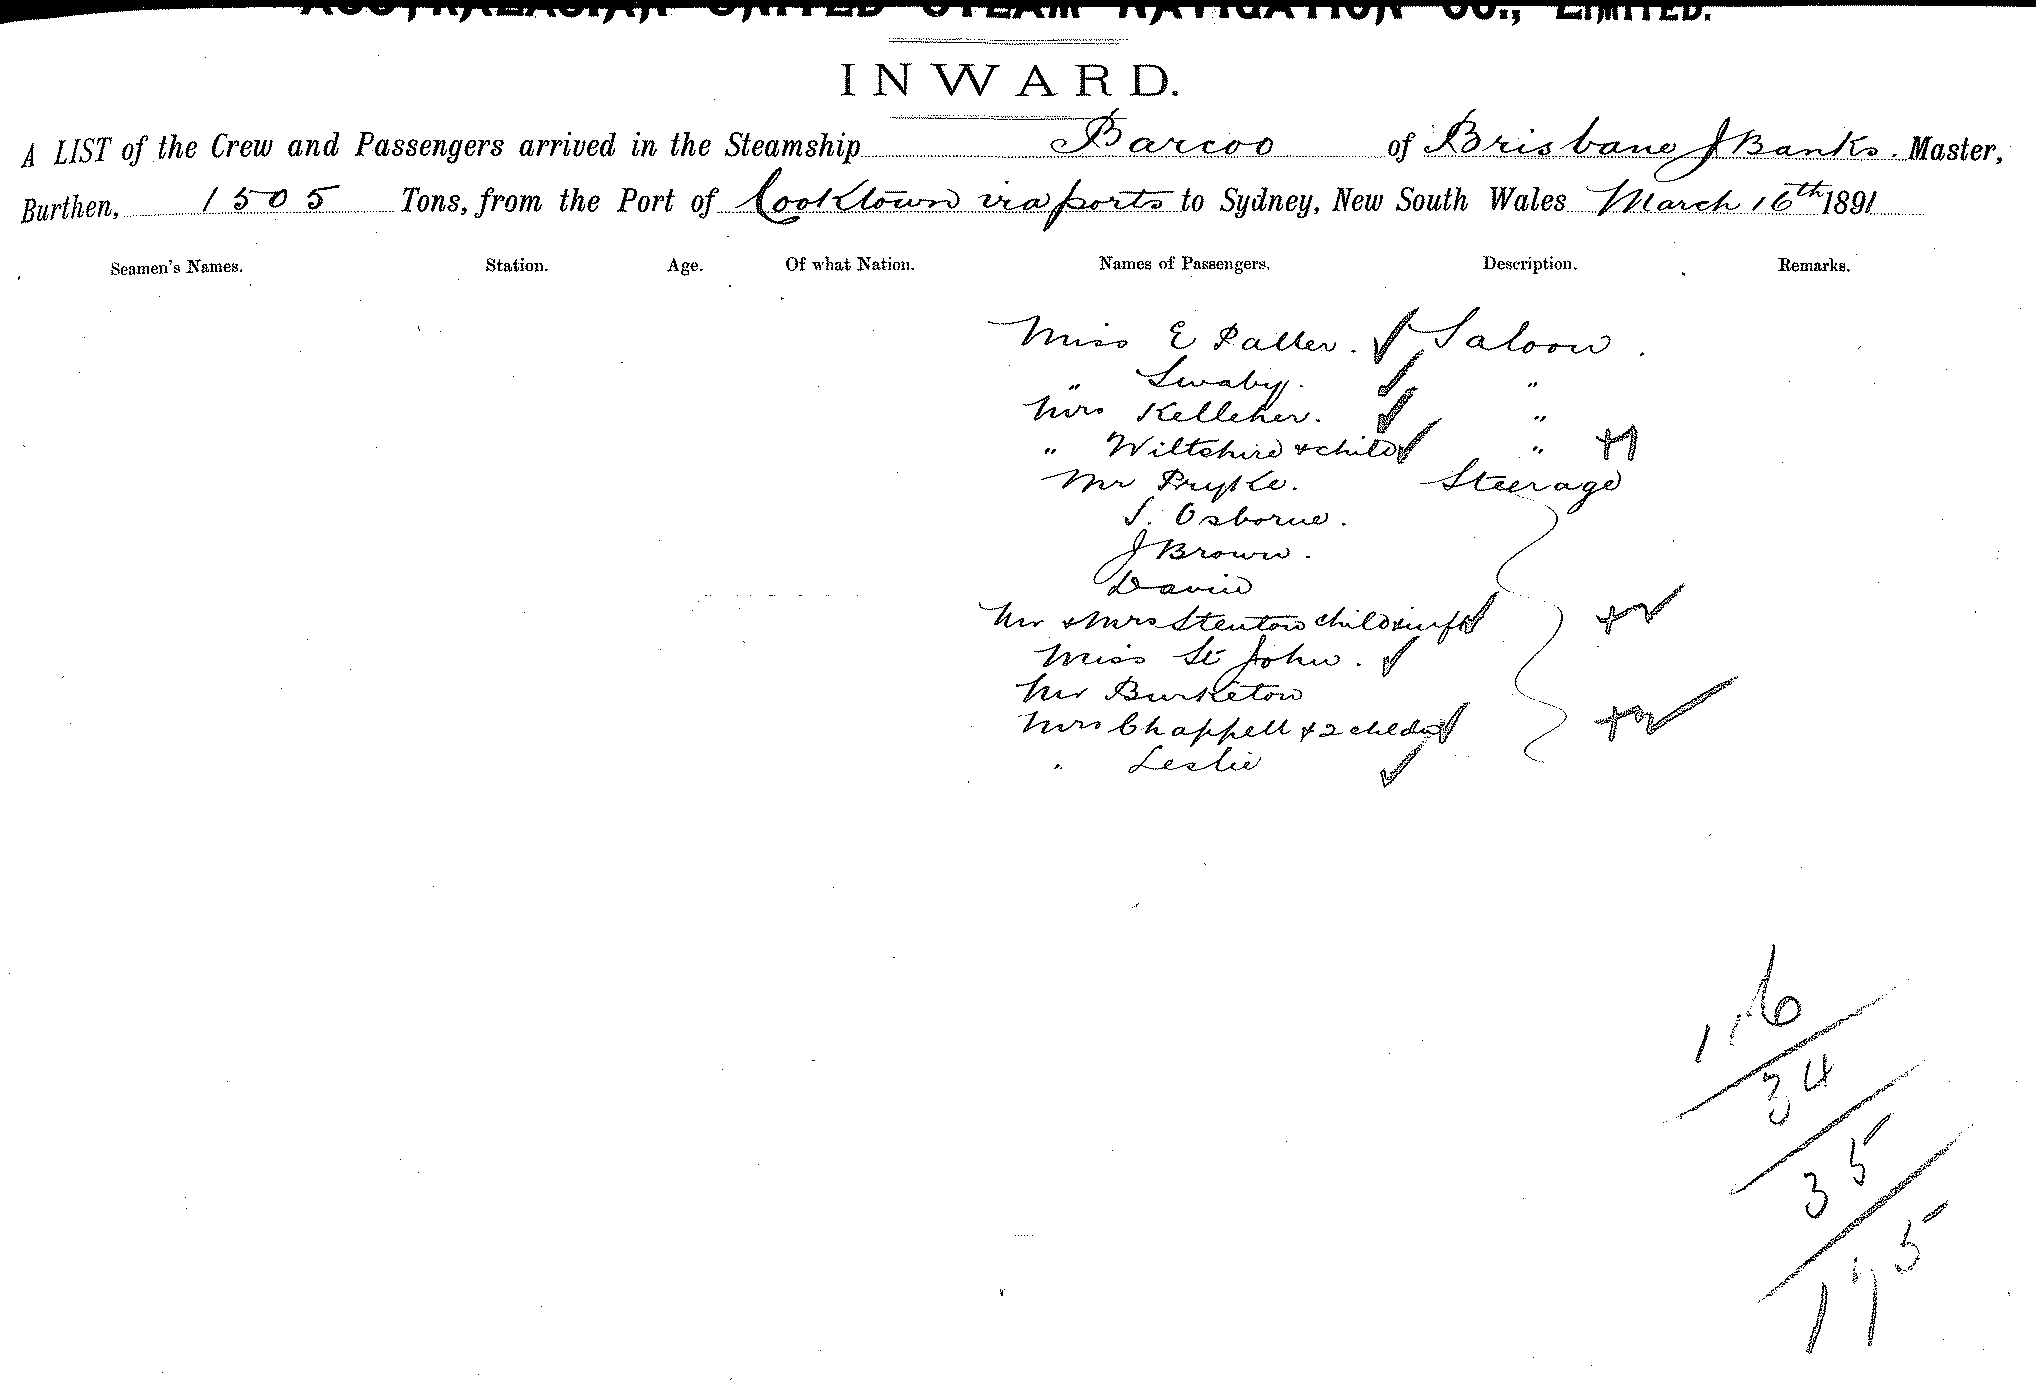 AUSTRALASIAN UNITED STEAM NAVIGATION CO., LIMITED.
INWARD.
A LIST of the Crew and Passengers arrived in the Steamship Barcoo of Brisbane J Banks. Master,
Burthen, 1505 Tons, from the Port of Cooktown via ports to Sydney, New South Wales March 16th 1891
Seamen's Names. Station. Age. Of what Nation. Names of Passengers. Description. Remarks.
Miss E . ✓ Saloon .
" Swaby. ✓ "
Mrs Kelleher. ✓ "
" Wiltshire & child ✓ " +1
Mr Pryke. Steerage
S. Osborne.
J Brown.
Mr & Mrs Stenton child & inft ✓ + ✓
Miss St John. ✓
Mr Burketon
Mrs Chappell & 2 ✓ + ✓
" Leslie ✓
34
35
175